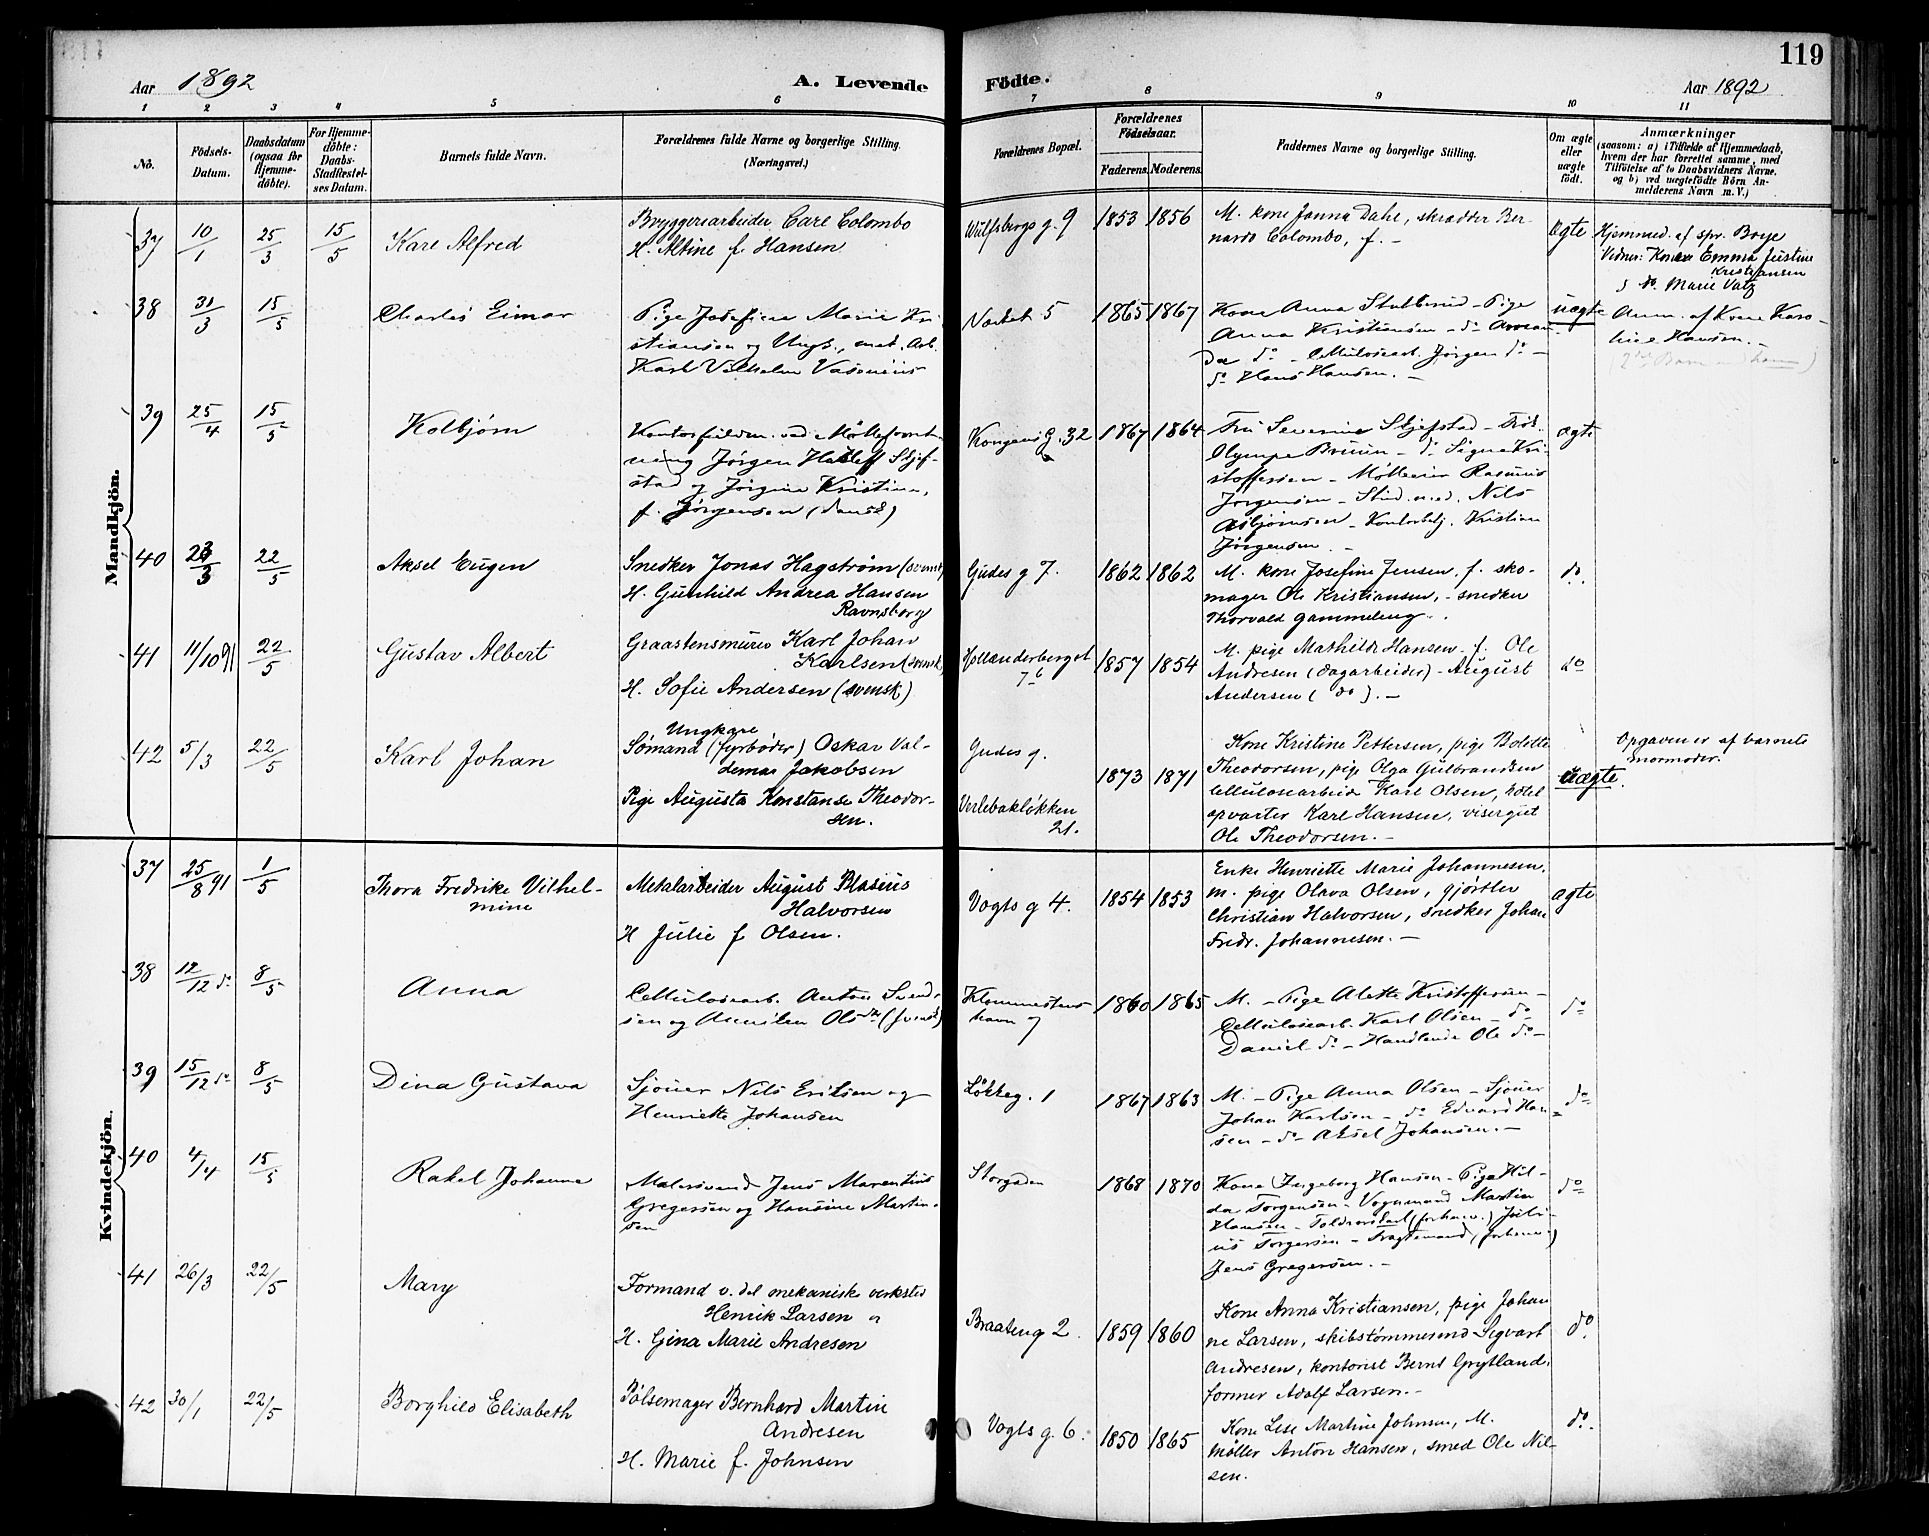 119
Aar 1892
A. Levende
Födte.
Aar 1892
1 2 3 4 5 6 7 8 9 10 11
No.
Födsels-
Datum.
Daabsdatum
(ogsaa for
Hjemme-
döbte).
For Hjemme-
döbte:
Daabs-
Stadfestel-
ses Datum.
Barnets fulde Navn.
Forældrenes fulde Navne og borgerlige Stilling.
(Næringsvei.)
Forældrenes Bopæl.
Forældrenes
Födselsaar.
Faderens. Moderens.
Faddernes Navne og borgerlige Stilling.
Om ægte
eller
uægte
födt.
Anmærkninger
(saasom: a) i Tilfælde af Hjemmedaab,
hvem der har forrettet samme, med
Tilföielse af to Daabsvidners Navne,
og b) ved uægtefödte Börn An-
melderens Navn m. V.)
Mandkjön.
37 10/1 25/3 15/5 Karl Alfred
Bryggeriarbeider Carl Colombo
H. Altine f. Hansen
Wulfsbergs g. 9 1853 1856
M. kone Janna Dahl, skrædder Ber-
nardo Colombo, f. –
Ægte
Hjemmed. af spr. Boye
Vidner: Kone Emma Justine
Kristiansen
do. Marie Vatz
38 31/3 15/5 Charles Eimar
Pige Josefine Marie Kri-
stiansen og Ungk., mek. Arb.
Karl Vilhelm Vasenius
Næket 5 1865 1867
Kone Anna Stubberud – Pige
Anna Kristiansen – do
da do – Cellulosearb. Jørgen do –
do Hans Hansen. –
uægte
Anm. af Kone Karo-
line Hansen. –
39 25/4 15/5 Kolbjørn
ved Mølleforret-
ning Jørgen Hatleff Skjef-
stad og Jørgine Kristine,
f. Jørgensen (dansk)
Kongens G. 32 1867 1864
Fru Severine Skjefstad – Frøk.
Olympe Bruun – do Signe Kri-
stoffersen – Møller Rasmus
Jørgensen – Stud. med. Nils
Asbjørnsen – Kontorbetj. Kristian
Jørgensen. –
ægte
40 23/3 22/5 Aksel Eugen
Snedker Jonas Hagstrøm (svensk)
H. Gunhild Andrea Hansen
Ravnsborg
Gudes g 7. 1862 1862
M. kone Josefine Jensen, f. sko-
mager Ole Kristiansen, – snedker
Thorvald Gammeleng.
do.
41 11/10 91 22/5 Gustav Albert
Graastensmurer Karl Johan
Karlsen (svensk)
H. Sofie Andersen (svensk)
Hollenderberget
7b 1857 1854
M. pige Mathilde Hansen – f. Ole
Andresen (dagarbeider) – August
Andersen (do). –
do
42 5/3 22/5 Karl Johan
Ungkare
Sømand (fyrbøder) Oskar Val-
demar Jakobsen
Pige Augusta Konstanse Theodor-
sen.
Gudes g.
Verlebakløkken
21.
1873 1871
Kone Kristine Pettersen, pige Bolette
Theodorsen, pige Olga Gulbrandsen
cellulosearbeid. Karl Olsen, hotel
opvarter Karl Hansen, visergut
Ole Theodorsen. –
Uægte.
Opgaven er af barnets
mormoder.
Kvindekjön.
37 25/8 91 1/5 Thora Fredrike Vilhel-
mine
Metalarbeider August Blasius
Halvorsen
H Julie f Olsen.
Vogts g 4. 1854 1853
Enke Henriette Marie Johannesen.
m. pige Olava Olsen, gjørtler
Christian Halvorsen, snedker Johan
Fredr. Johannesen. –
ægte
38 12/12 do 8/5 Anna
Cellulosearb. Anton Svend-
sen og Olsdtr (svensk)
havn 7 1860 1865
M. – Pige Alette Kristoffersen –
Cellulosearb. Karl Olsen – do
Daniel do – Handlende Ole do –
do
39 15/12 do 8/5 Dina Gustava
Sjouer Nils Eriksen og
Henriette Johansen
Løkkeg. 1 1867 1863
M. – Pige Anna Olsen – Sjouer
Johan Karlsen – do Edvard Han-
sen – do Aksel Johansen. –
do
40 4/4 15/5 Rakel Johanne
Malersvend Jens Marentius
Gregersen og Hansine Martin-
sen
Storgaden 1868 1870
Kone Ingeborg Hansen – Pige Hil-
da Torgersen – Vognmand Martin
Hansen – (forhenv.) Juli-
us Torgersen – Fragtemand (forhenv.)
Jens Gregersen. –
do
41 26/3 22/5 Mary
Formand v. det mekaniske verksted
Henrik Larsen og
H. Gina Marie Andresen
Braateng 2. 1859 1860
Kone Anna Kristiansen, pige Johan
ne Larsen, skibstømmermd Sigvart
Andresen, kontorist Bernt Grytland,
former Adolf Larsen. –
do.
42 30/1 22/5 Borghild Elisabeth
Pølsemager Bernhard Martin
Andresen
H. Marie f. Johnsen
Vogts g. 6. 1850 1865
Kone Lise Martine Johnsen, M.
møller Anton Hansen, smed Ole Nil-
sen.
do.